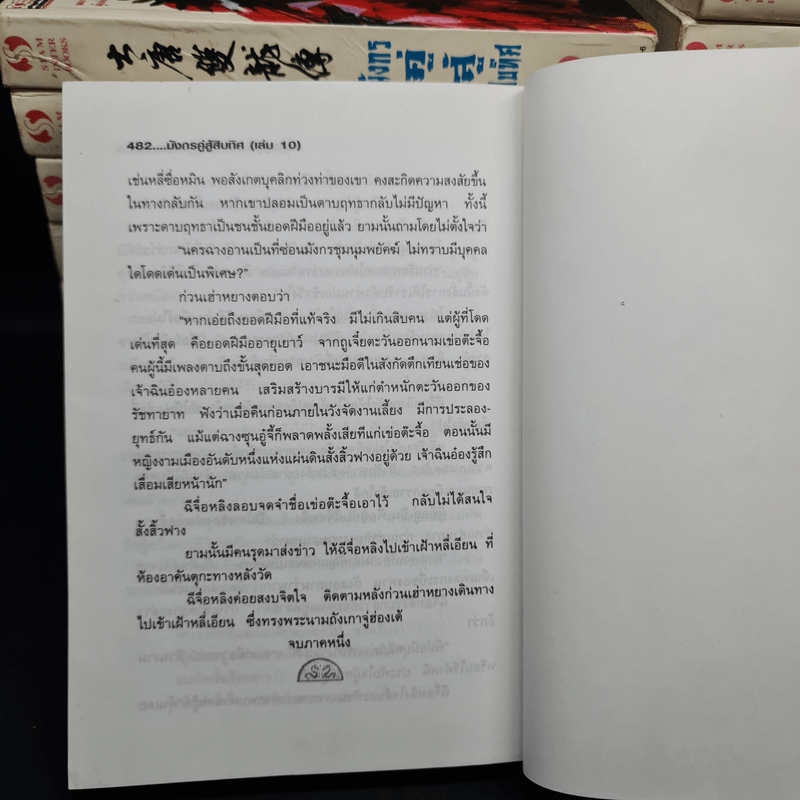 SIAM
INTER
BOOKS
大唐雙龍傳
มังกร
คู่สู้
สิบทิศ
482....มังกรคู่สู้สิบทิศ (เล่ม 10)
เช่นหลี่ซื่อหมิน พอสังเกตบุคลิกท่วงท่าของเขา คงสะกิดความสงสัยขึ้น
ในทางกลับกัน หากเขาปลอมเป็นดาบฤทธากลับไม่มีปัญหา ทั้งนี้
เพราะดาบฤทธาเป็นชนชั้นยอดฝีมืออยู่แล้ว ยามนั้นถามโดยไม่ตั้งใจว่า
"นครฉางอานเป็นที่ซ่อนมังกรชุมนุมพยัคฆ์ ไม่ทราบมีบุคคล
ใดโดดเด่นเป็นพิเศษ?"
ก่วนเฮ่าหยางตอบว่า
"หากเอ่ยถึงยอดฝีมือที่แท้จริง มีไม่เกินสิบคน แต่ผู้ที่โดด
เด่นที่สุด คือยอดฝีมืออายุเยาว์ จากถูเจี๋ยตะวันออกนามเข่อต๊ะจื้อ
คนผู้นี้มีเพลงดาบถึงขั้นสุดยอด เอาชนะมือดีในสังกัดตึกเทียนเช่อของ
เจ้าฉินอ๋องหลายคน เสริมสร้างบารมีให้แก่ตำหนักตะวันออกของ
รัชทายาท ฟังว่าเมื่อคืนก่อนภายในวังจัดงานเลี้ยง มีการประลอง-
ยุทธ์กัน แม้แต่ฉางซุนอู๋จี้ก็พลาดพลั้งเสียทีแก่เข่อต๊ะจื้อ ตอนนั้นมี
หญิงงามเมืองอันดับหนึ่งแห่งแผ่นดินสั้งสิ้วฟางอยู่ด้วย เจ้าฉินอ๋องรู้สึก
เสื่อมเสียหน้านัก"
ฉีจื่อหลิงลอบจดจำชื่อเข่อต๊ะจื้อเอาไว้ กลับไม่ได้สนใจ
สั้งสิ้วฟาง
ยามนั้นมีคนรุดมาส่งข่าว ให้ฉีจื่อหลิงไปเข้าเฝ้าหลี่เอียน ที่
ห้องอาคันตุกะทางหลังวัด
ฉีจื่อหลิงค่อยสงบจิตใจ ติดตามหลังก่วนเฮ่าหยางเดินทาง
ไปเข้าเฝ้าหลี่เอียน ซึ่งทรงพระนามถังเกาจู่ฮ่องเต้
จบภาคหนึ่ง